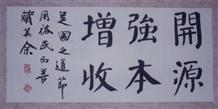 開源
強本
增收
足國之道節
用裕民而善
臧其余